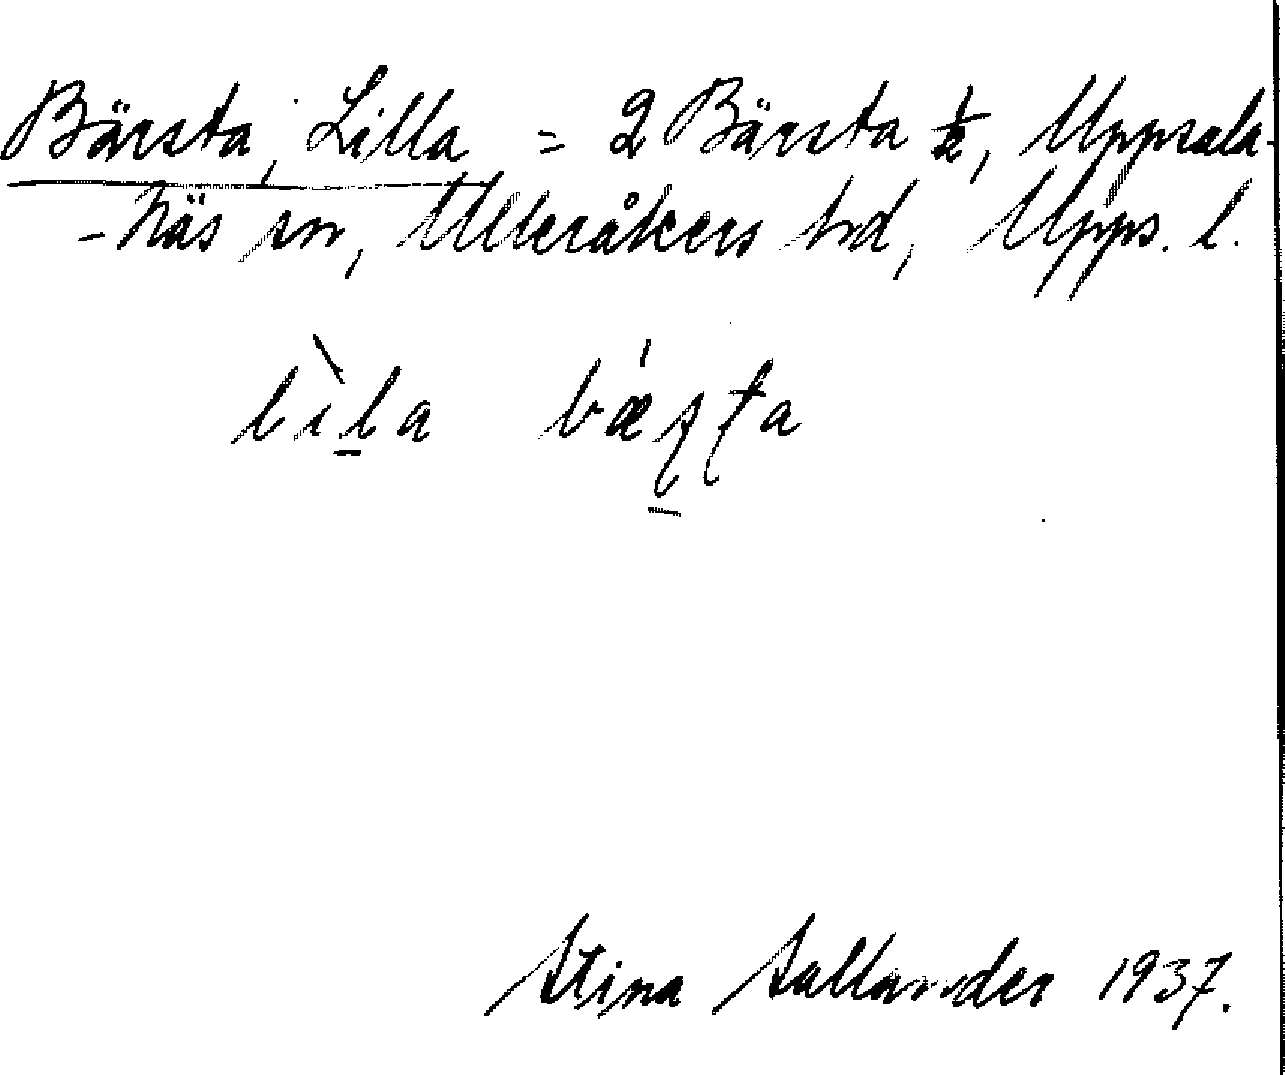 Bärsta, Lilla = 2 Bärsta ½, Uppsala-
-Näs sn, Ulleråkers hd, Upps. l.
lìl̲a bǽʂ̲ʈa
Stina Sallander 1937.